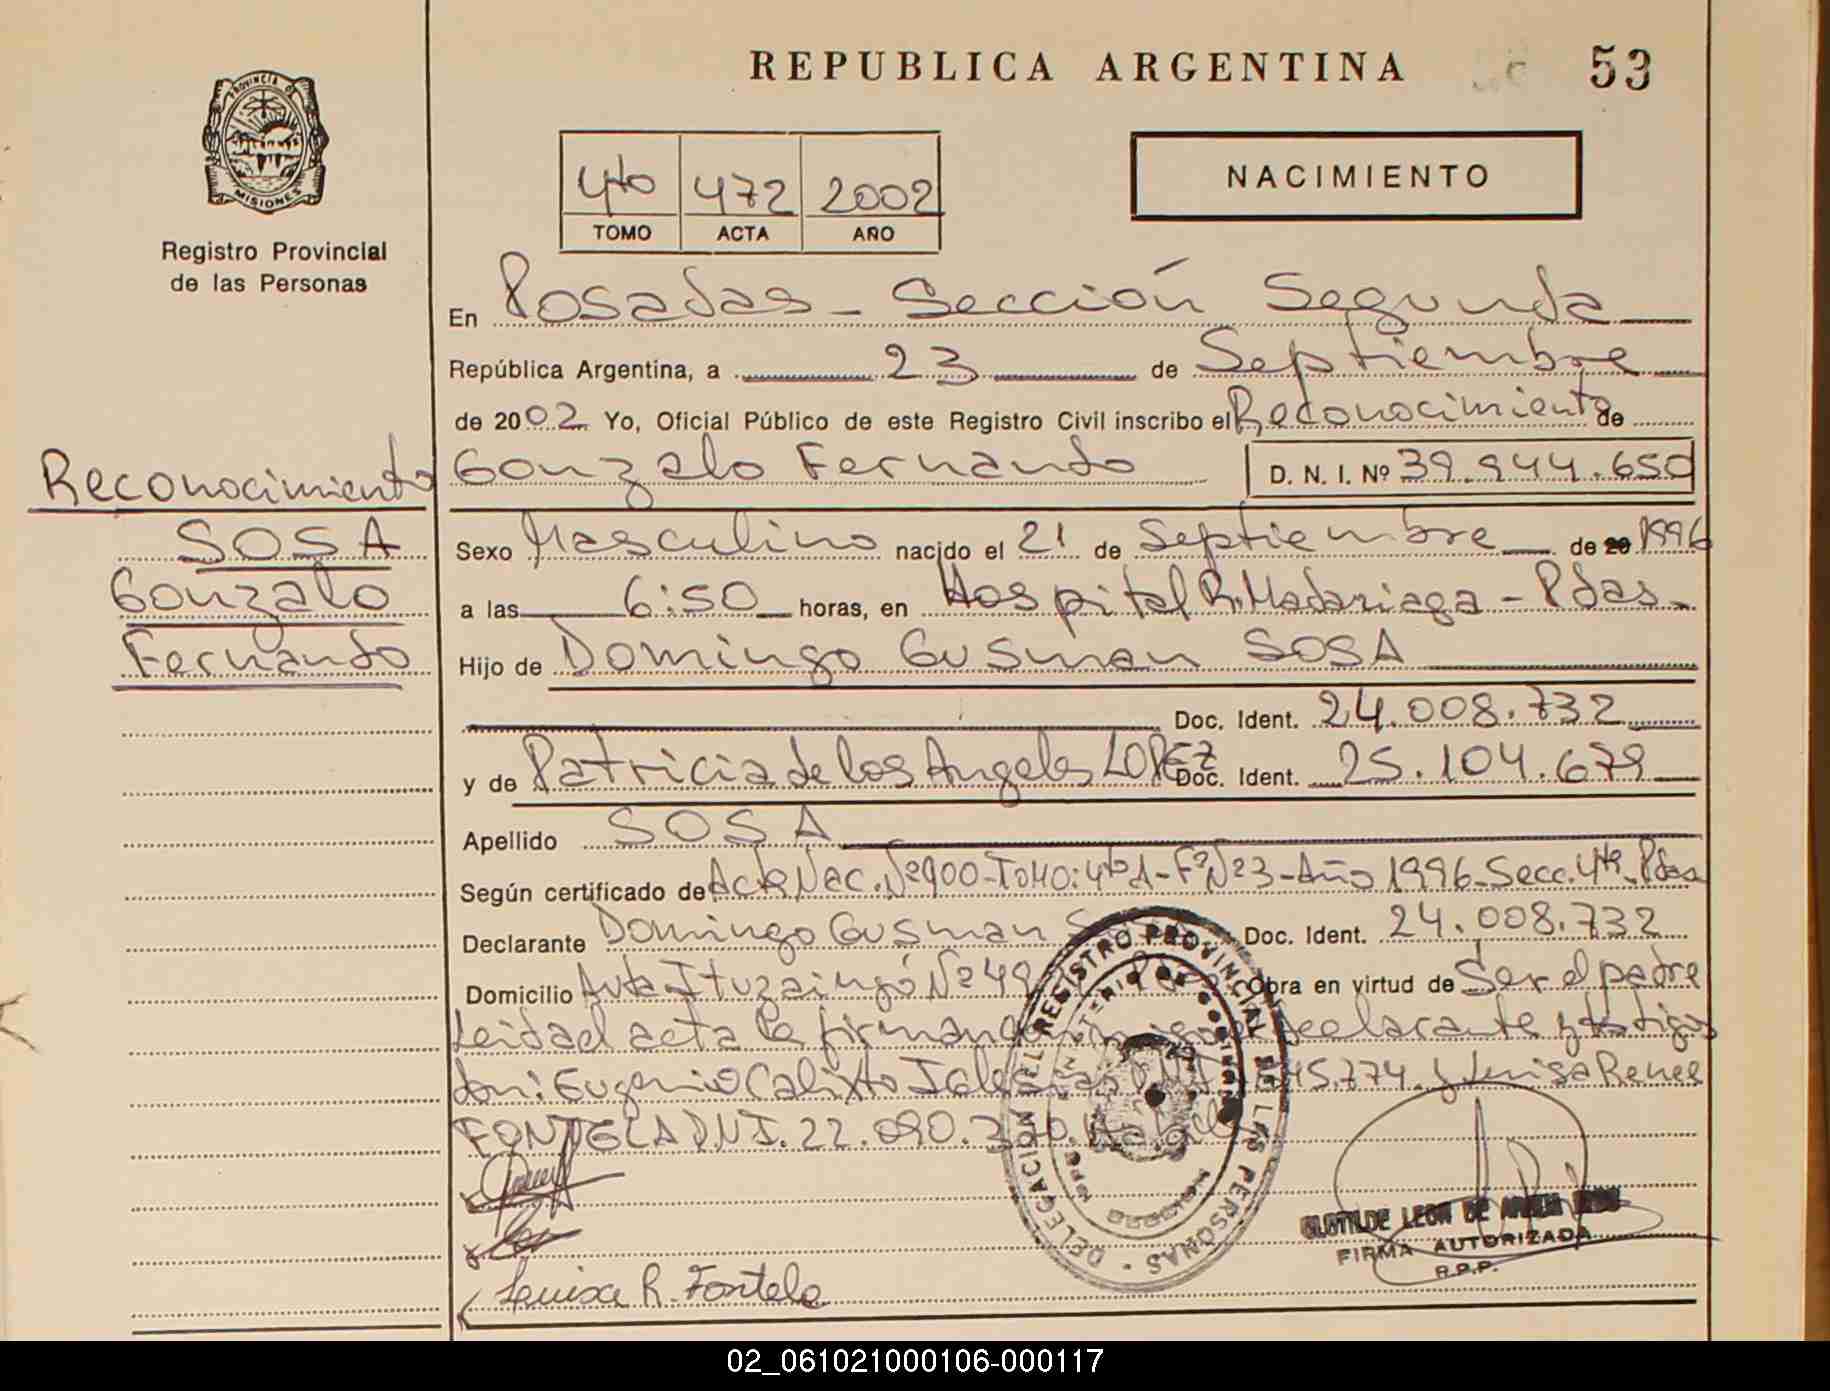 REPUBLICA ARGENTINA 53
PROVINCIA DE
MISIONES
Registro Provincial
de las Personas
4to 472 2002
TOMO ACTA AÑO
NACIMIENTO
En Posadas - Sección Segunda
República Argentina, a 23 de Septiembre
de 2002 Yo, Oficial Público de este Registro Civil inscribo el Reconocimiento de
Reconocimiento
SOSA
Gonzalo
Fernando
Gonzalo Fernando D. N. I. Nº 39.944.650
Sexo Masculino nacido el 21 de Septiembre de 20 1996
a las 6:50 horas, en Hospital R. Madariaga - Pdas.
Hijo de Domingo Gusman SOSA
Doc. Ident. 24.008.732
y de Patricia de los Angeles LOPEZ Doc. Ident. 25.104.679
Apellido SOSA
Según certificado de Acta Nac. Nº 900 - Tomo: 4to A - Fº Nº 23 - Año 1996 - Secc. 4ta - Pdas
Declarante Domingo Gusman Doc. Ident. 24.008.732
Domicilio Avda Ituzaingó Nº 49 Obra en virtud de Ser el padre
Leida el acta la firman declarante y testigos
don: Eugenio Calixto Iglesias DNI 45.774. y Luisa Renee
FONTELA DNI. 22.090.
DELEGACION DEL REGISTRO PROVINCIAL DE LAS PERSONAS
MINISTERIO DE GOBIERNO
CLOTILDE LEON DE
FIRMA AUTORIZADA
R.P.P.
Luisa R. Fontela
02_061021000106-000117